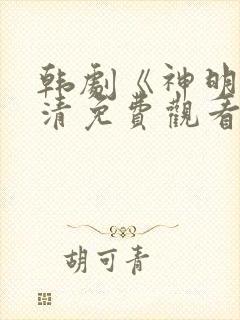 韩劇《神明
清免費觀看
胡可青